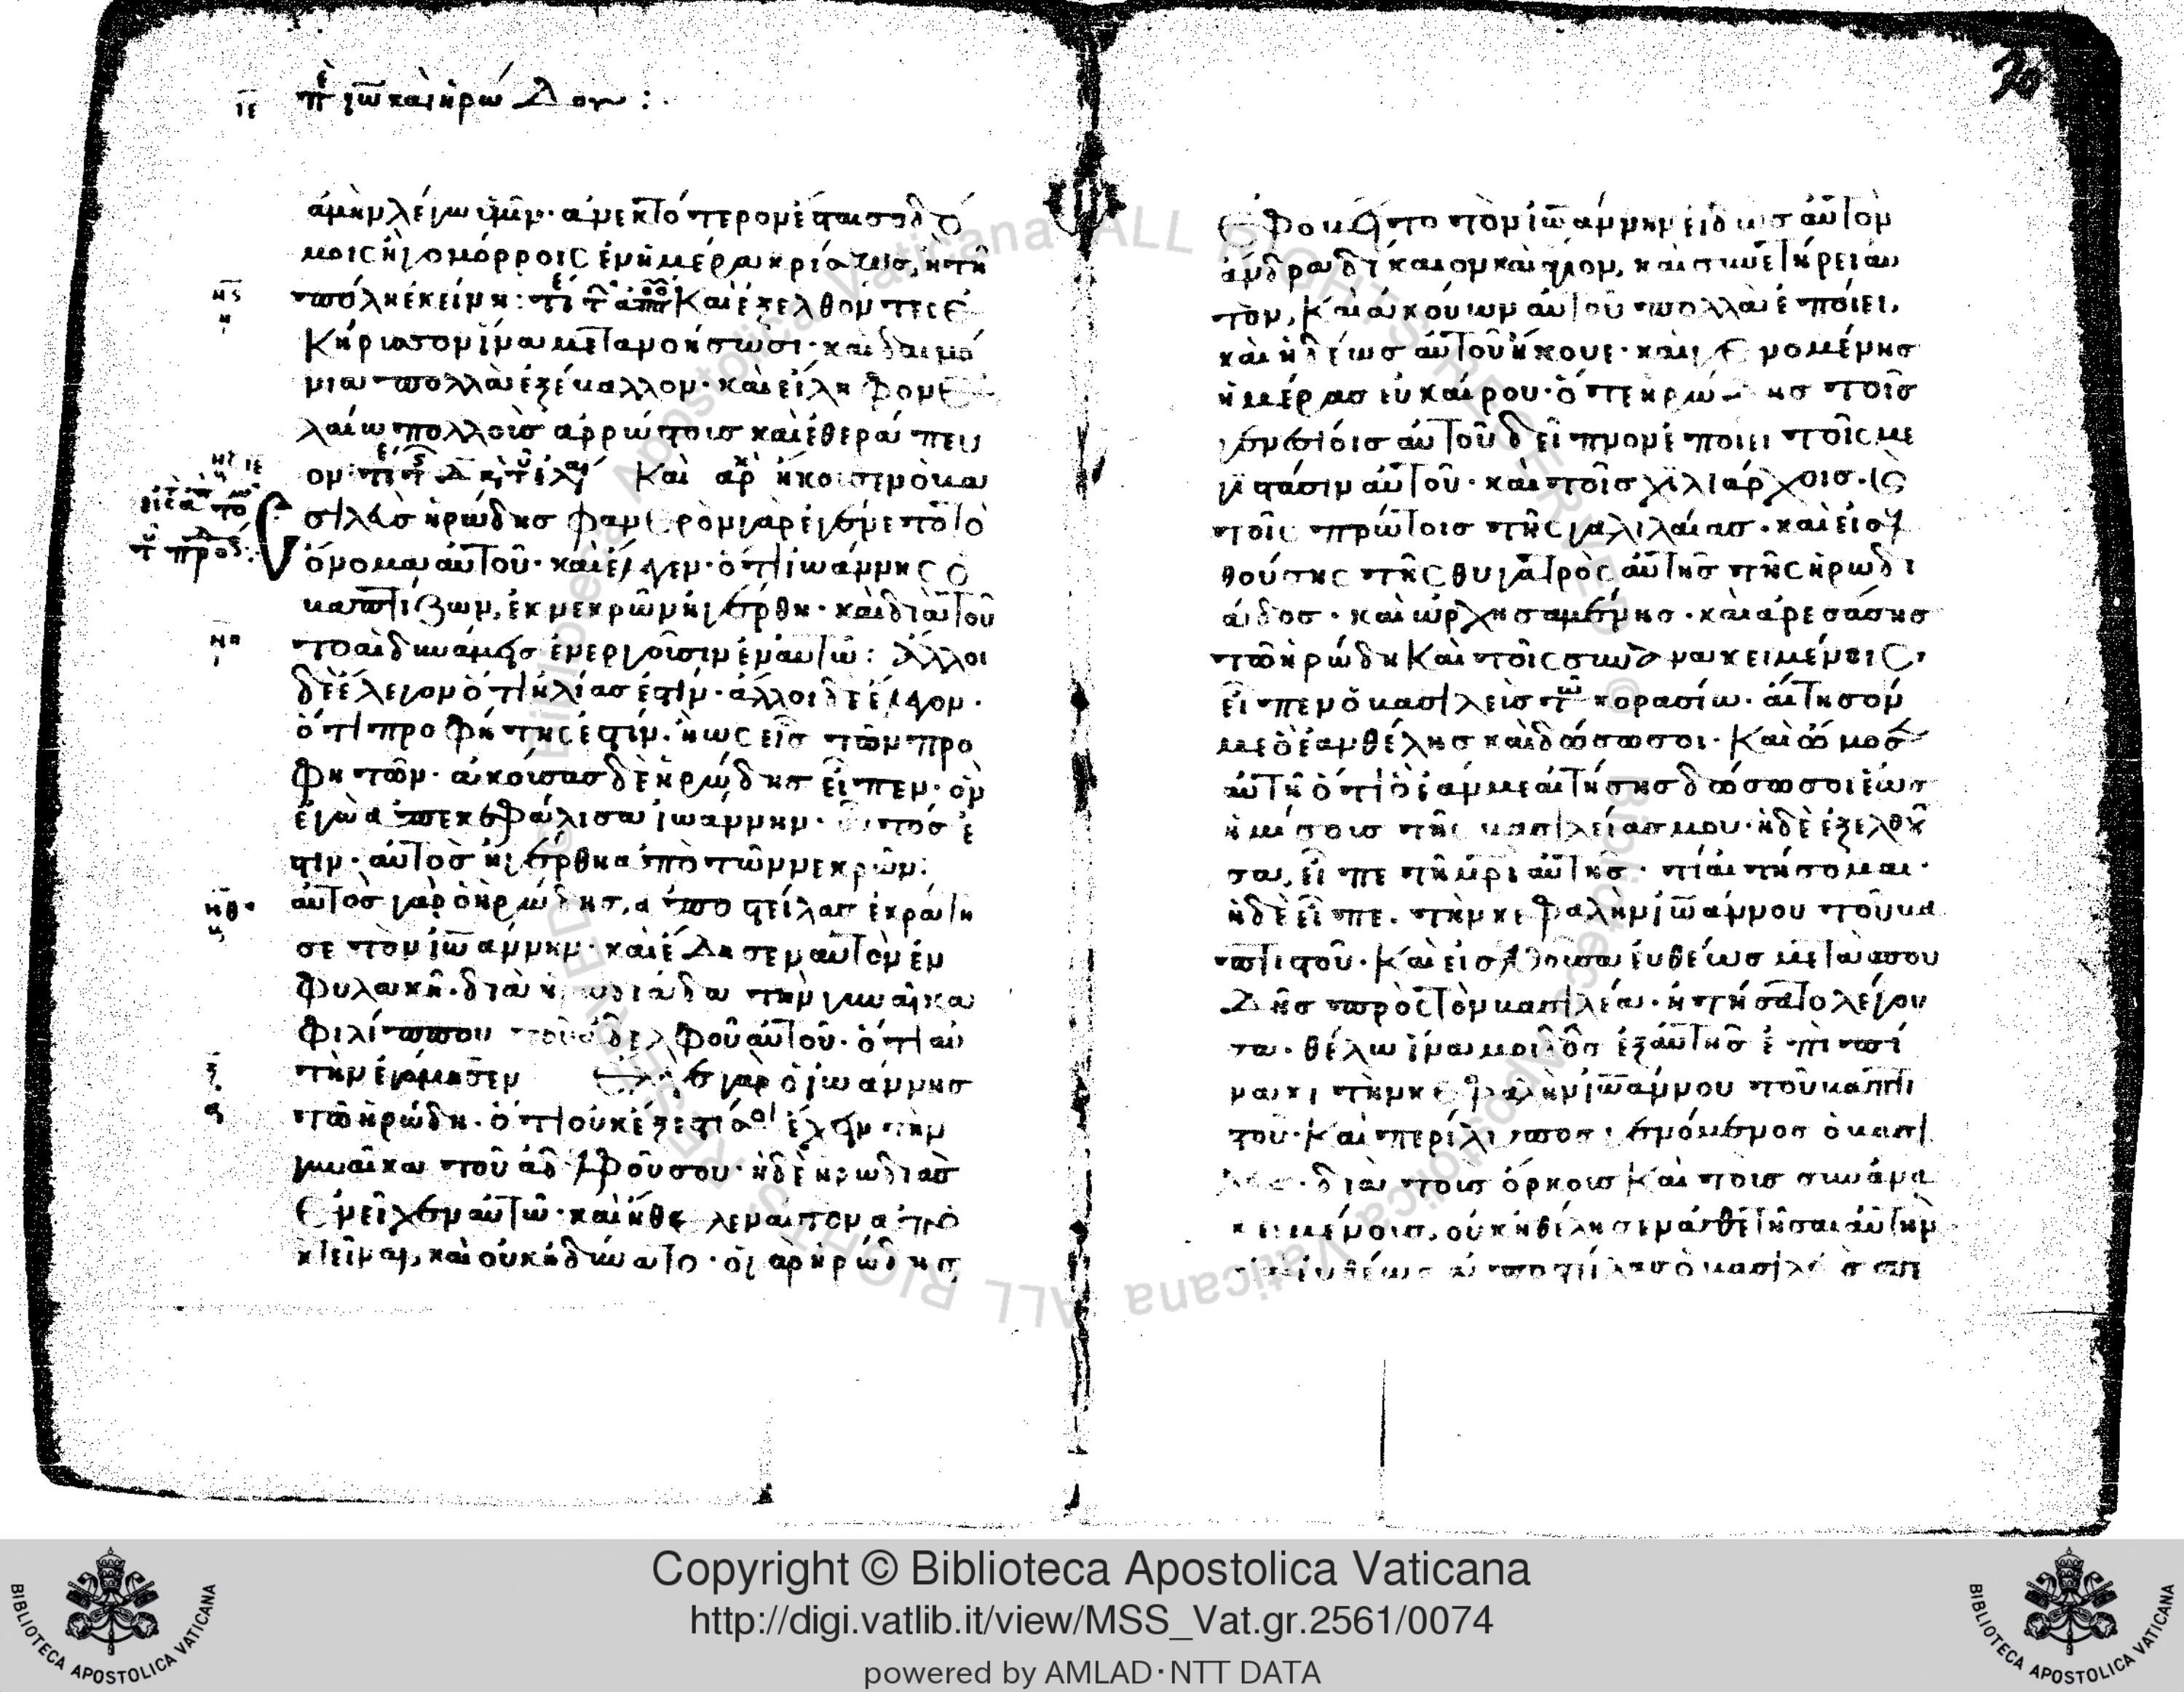 ιε πε ιω και ηρώδου:
ἀμὴν λέγω ὑμῖν· ἀνεκτότερον ἔσται σοδό
μοις ἢ γομόρροις ἐν ἡμέρα κρίσεως, ἢ τῆ
πόλη ἐκείνη: Καὶ ἐξελθόντες ἐ
κήρυσσον ἵνα μετανοήσωσι· καὶ δαιμό
νια πολλὰ ἐξέβαλλον· καὶ εἴληφον ἐ
λαίω πολλοὺς ἀρρώστους καὶ ἐθεράπευ
ον· Καὶ ἤκουσεν ὁ βα
σιλεὺς ἡρώδης φανερὸν γὰρ ἐγένετο τὸ
ὄνομα αὐτοῦ· καὶ ἔλεγεν· ὅτι ἰωάννης ὁ
βαπτίζων, ἐκ νεκρῶν ἠγέρθη· καὶ διατοῦ
το αἱ δυνάμεις ἐνεργοῦσιν ἐν αὐτῶ: Ἄλλοι
δὲ ἔλεγον ὅτι ἠλίας ἐστίν· ἄλλοι δὲ ἔλεγον·
ὅτι προφήτης ἐστίν· ἢ ὡς εἷς τῶν προ
φητῶν· ἀκούσας δὲ ἡρώδης εἶπεν· ὃν
ἐγὼ ἀπεκεφάλισα ἰωάννην· οὗτός ἐ
στιν· αὐτὸς ἠγέρθη ἀπὸ τῶν νεκρῶν:
αὐτὸς γὰρ ὁ ἡρώδης, ἀποστείλας ἐκράτη
σε τὸν ἰωάννην· καὶ ἔδησεν αὐτὸν ἐν
φυλακῆ· διὰ ἡρωδιάδα τὴν γυναῖκα
φιλίππου τοῦ ἀδελφοῦ αὐτοῦ· ὅτι αὐ
τὴν ἐγάμησεν ἔλεγε γὰρ ὁ ἰωάννης
τῶ ἡρώδη· ὅτι οὐκ ἔξεστί σοι ἔχειν τὴν
γυναῖκα τοῦ ἀδελφοῦ σου· ἡ δὲ ἡρωδιὰς
ἐνεῖχεν αὐτῶ· καὶ ἤθελεν αὐτὸν ἀπο
κτεῖναι, καὶ οὐκ ἠδύνατο· ὁ γὰρ ἡρώδης
ἐφοβεῖτο τὸν ἰωάννην εἰδὼς αὐτὸν
ἄνδρα δίκαιον καὶ ἅγιον, καὶ συνετήρει αὐ
τὸν, καὶ ἀκούων αὐτοῦ πολλὰ ἐποίει,
καὶ ἡδέως αὐτοῦ ἤκουε· καὶ γενομένης
ἡμέρας εὐκαίρου· ὅτε ἡρώδης τοῖς
γενεσίοις αὐτοῦ δεῖπνον ἐποίει τοῖς με
γιστάσιν αὐτοῦ· καὶ τοῖς χιλιάρχοις· καὶ
τοῖς πρώτοις τῆς γαλιλαίας· καὶ εἰσελ
θούσης τῆς θυγατρὸς αὐτῆς τῆς ἡρωδι
άδος· καὶ ὠρχησαμένης· καὶ ἀρεσάσης
τῶ ἡρώδη καὶ τοῖς συνανακειμένοις,
εἶπεν ὁ βασιλεὺς τῶ κορασίω· αἴτησόν
με ὃ ἐὰν θέλης καὶ δώσω σοι· Καὶ ὤμοσεν
αὐτῆ ὅτι ὃ ἐάν με αἰτήσης δώσω σοι ἕως
ἡμίσους τῆς βασιλείας μου· ἡ δὲ ἐξελθοῦ
σα, εἶπε τῆ μρι αὐτῆς· τί αἰτήσομαι·
ἡ δὲ εἶπε. τὴν κεφαλὴν ἰωάννου τοῦ βα
πτιστοῦ· Καὶ εἰσελθοῦσα εὐθέως μετὰ σπου
δῆς πρὸς τὸν βασιλέα· ἠτήσατο λέγου
σα· θέλω ἵνα μοι δῶς ἐξαυτῆς ἐπὶ πί
νακι τὴν κεφαλὴν ἰωάννου τοῦ βαπτι
στοῦ· Καὶ περίλυπος γενόμενος ὁ βασι
λεὺς· διὰ τοὺς ὅρκους καὶ τοὺς συνανα
κειμένους, οὐκ ἠθέλησεν ἀθετῆσαι αὐτήν
καὶ εὐθέως ἀποστείλας ὁ βασιλεὺς σπε
Copyright © Biblioteca Apostolica Vaticana
http://digi.vatlib.it/view/MSS_Vat.gr.2561/0074
powered by AMLAD·NTT DATA
BIBLIOTECA APOSTOLICA VATICANA
BIBLIOTECA APOSTOLICA VATICANA